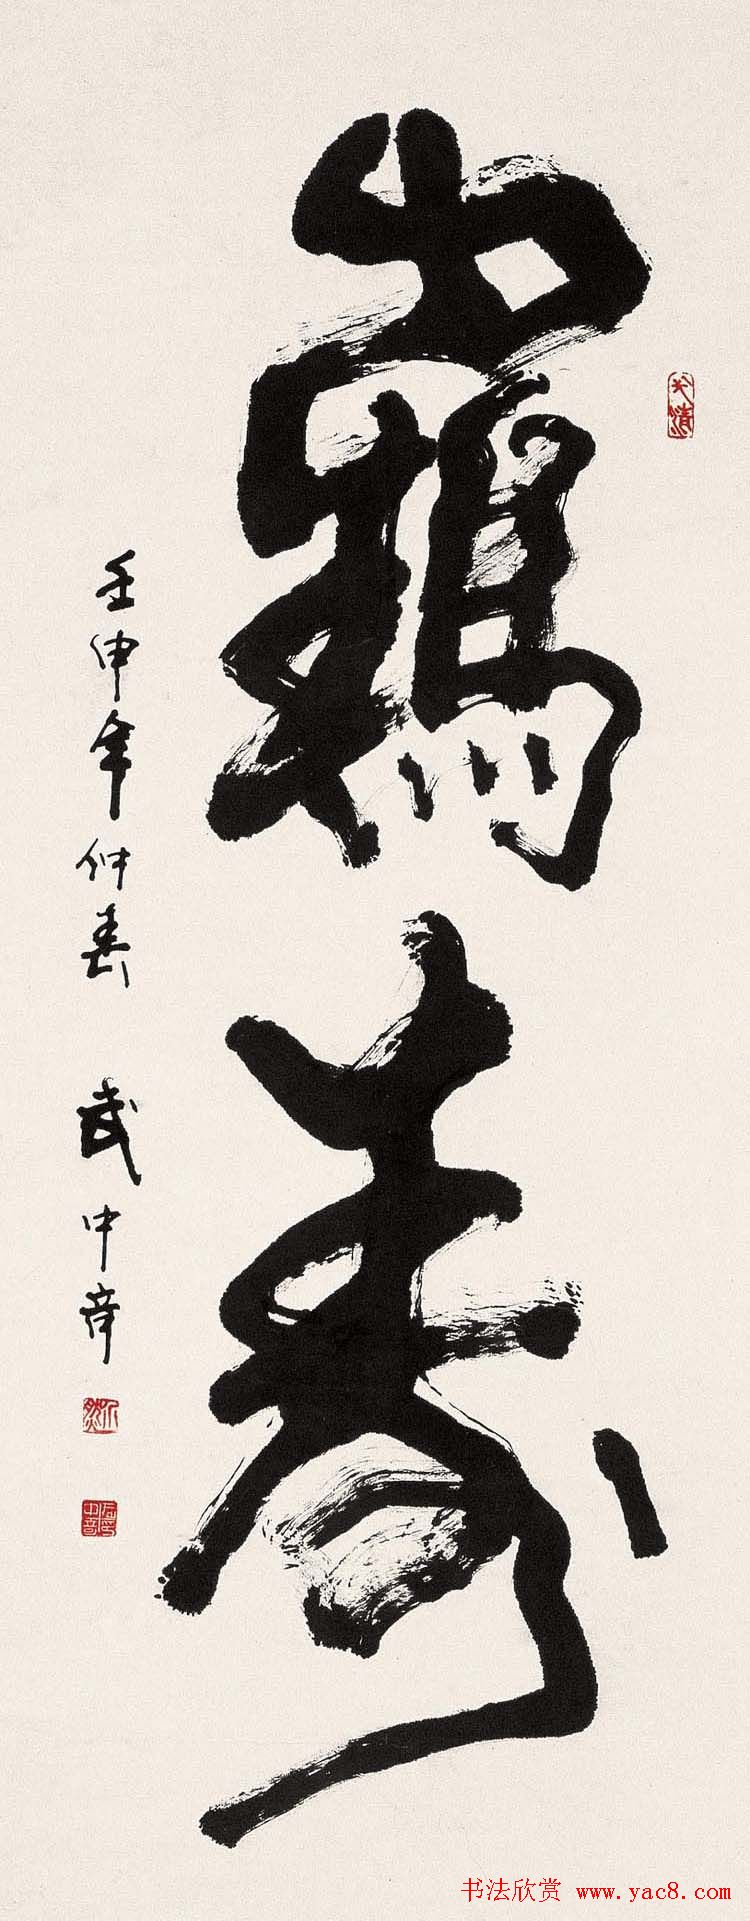 鶴寿
壬申年仲春 武中奇
书法欣赏 www.yac8.com